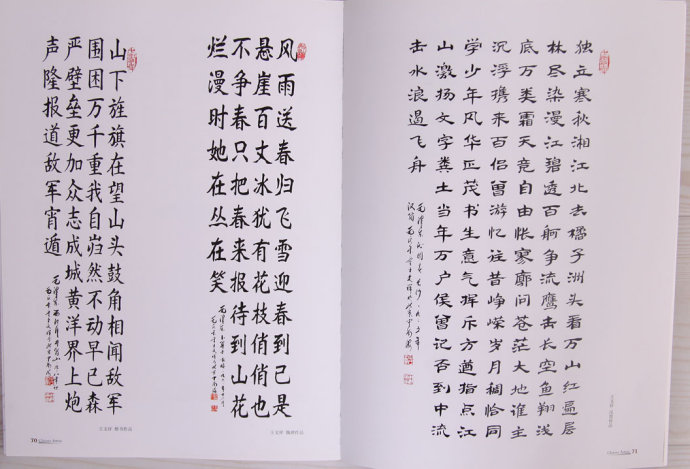 风雨送春归飞雪迎春到已是
悬崖百丈冰犹有花枝俏俏也
不争春只把春来报待到山花
烂漫时她在丛在笑
山下旌旗在望山头鼓角相闻敌军
围困万千重我自岿然不动早已森
严壁垒更加众志成城黄洋界上炮
声隆报道敌军宵遁
王文祥 楷书作品
30
独立寒秋湘江北去橘子洲头看万山红遍层
林尽染漫江碧透百舸争流鹰击长空鱼翔浅
底万类霜天竞自由怅寥廓问苍茫大地谁主
沉浮携来百侣曾游忆往昔峥嵘岁月稠恰同
学少年风华正茂书生意气挥斥方遒指点江
山激扬文字粪土当年万户侯曾记否到中流
击水浪遏飞舟
31